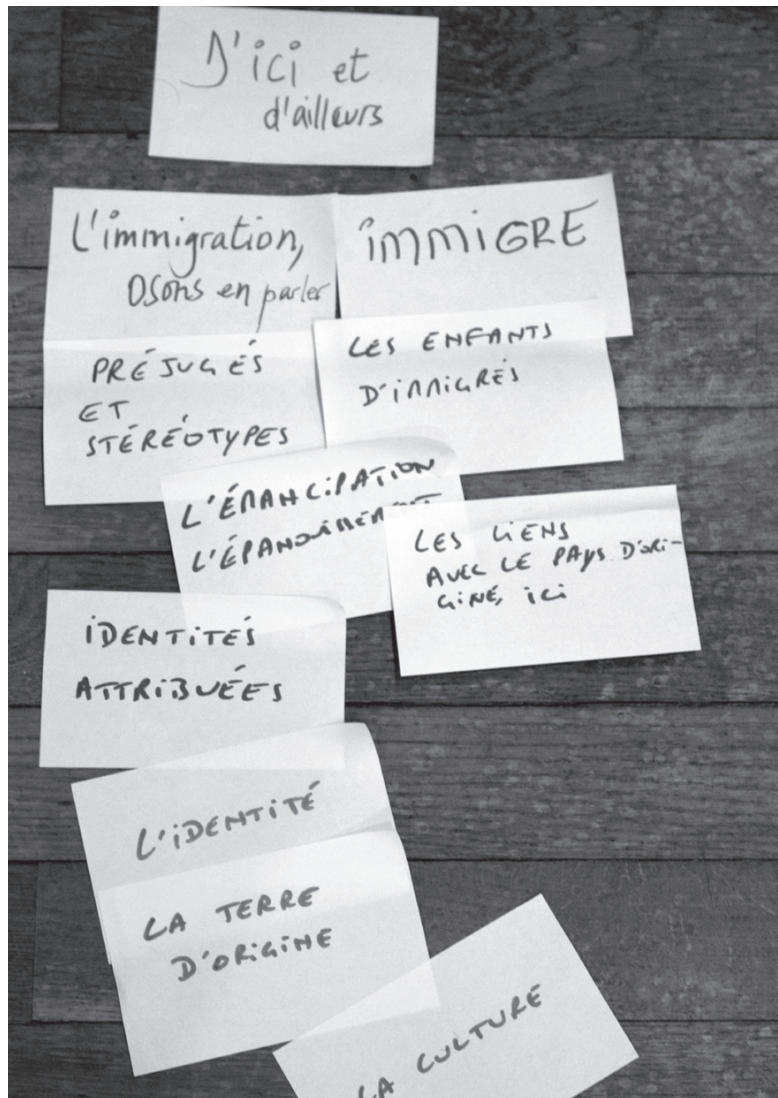 D'ici et
d'ailleurs
L'immigration,
Osons en parler
iMMiGRE
PRÉJUGÉS
ET
STÉRÉOTYPES
LES ENFANTS
D'iMMiGRES
L'ÉMANCiPATiON
L'ÉPANOUISSEMENT
LES LiENS
AVEC LE PAYS D'ORi-
GiNE, iCi
iDENTiTÉS
ATTRiBUÉES
L'iDENTiTÉ
LA TERRE
D'ORiGiNE
LA CULTURE